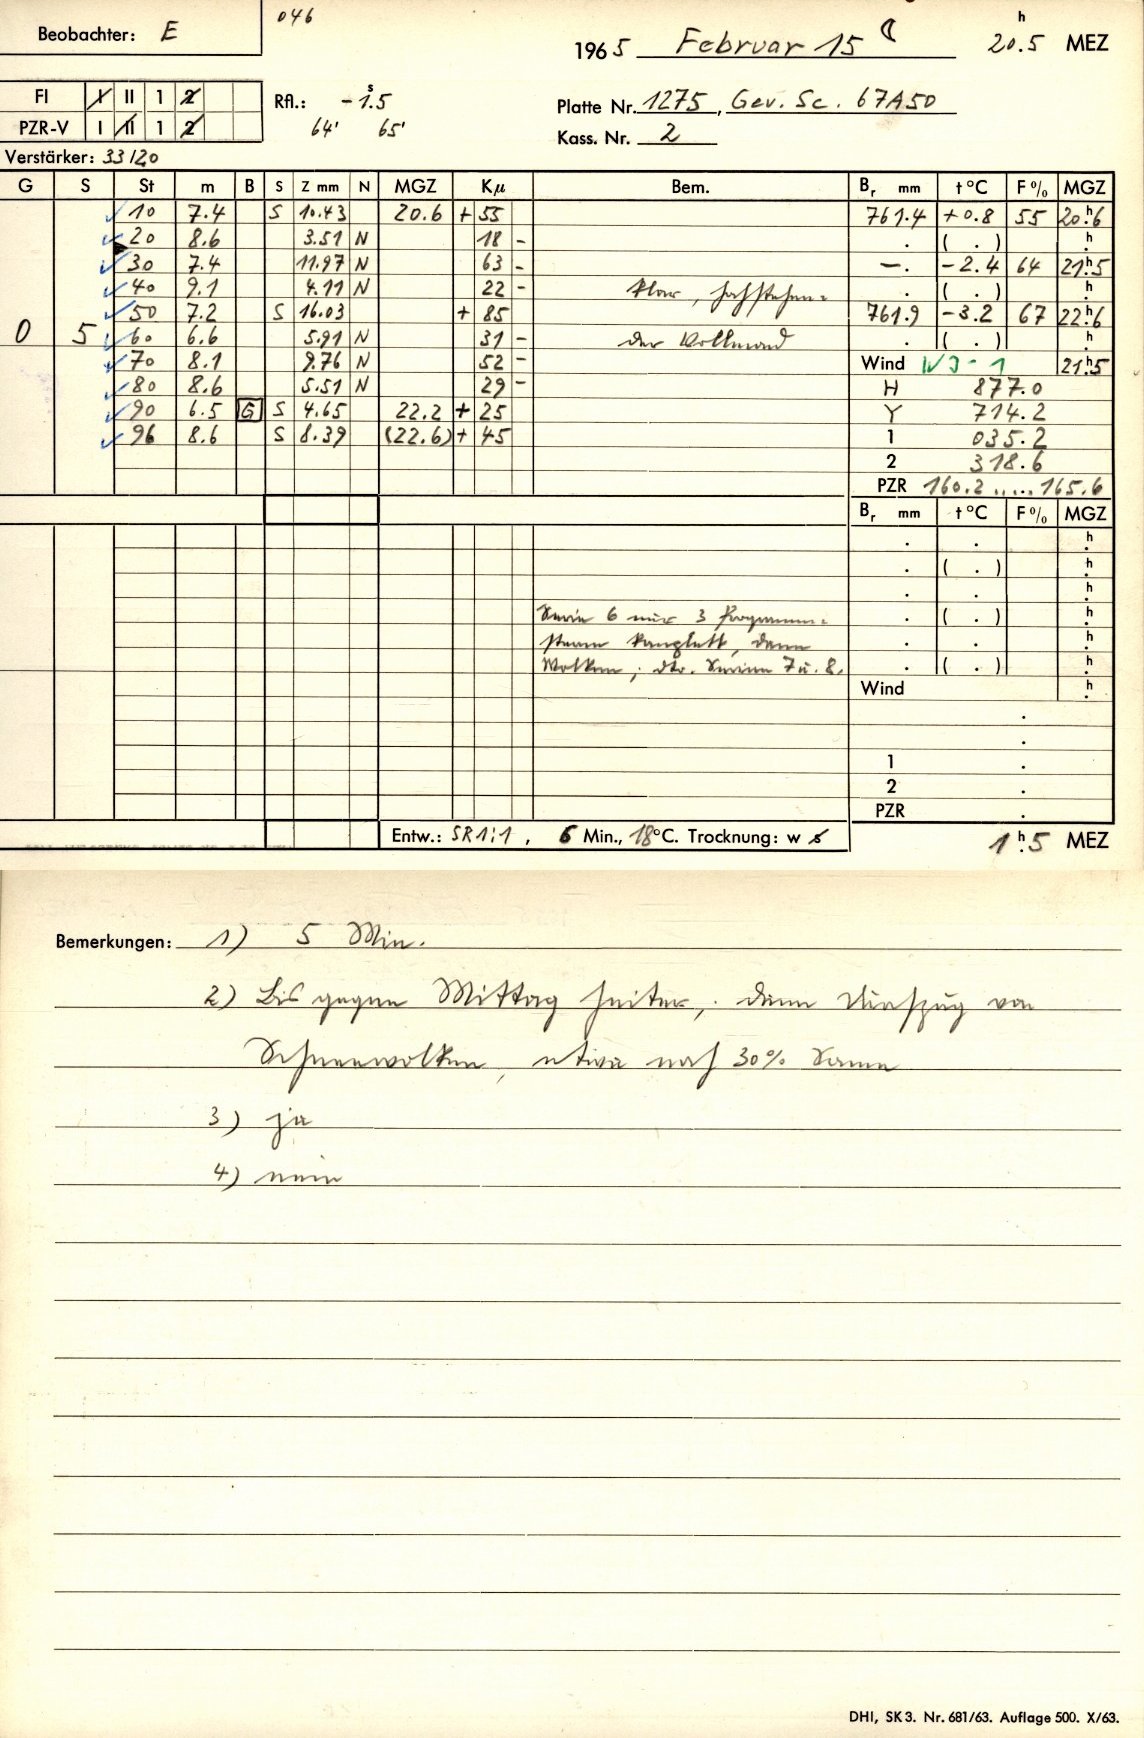 Beobachter: E
046
1965 Februar 15 ☾ 20h.5 MEZ
FI I II 1 2
PZR-V I II 1 2
Rfl.: -1s.5
64' 65'
Platte Nr. 1275, Gev. Sc. 67A50
Kass. Nr. 2
Verstärker: 33/20
G S St m B S Z mm N MGZ Kμ Bem. Br mm t °C F % MGZ
10 7.4 S 10.43 20.6 + 55 761.4 +0.8 55 20h.6
20 8.6 3.51 N 18 - . ( . ) h.
30 7.4 11.97 N 63 - —. -2.4 64 21h.5
40 9.1 4.11 N 22 - klar, hochstehen= . ( . ) h.
50 7.2 S 16.03 + 85 761.9 -3.2 67 22h.6
0 5 60 6.6 5.91 N 31 - der Vollmond . ( . ) h.
70 8.1 9.76 N 52 - Wind 21h.5
80 8.6 5.51 N 29 - H 877.0
90 6.5 G S 4.65 22.2 + 25 Y 714.2
96 8.6 S 8.39 (22.6) + 45 1 035.2
2 318.6
PZR 160.2 ..... 165.6
Br mm t °C F % MGZ
. . h.
. ( . ) h.
. . h.
Serie 6 nur 3 Programm= . ( . ) h.
sterne komplett, dann . . h.
Wolken; dto. Serien 7 u. 8. . ( . ) h.
Wind h.
.
.
1 .
2 .
PZR .
Entw.: SR 1:1, 6 Min., 18°C. Trocknung: w s
1h.5 MEZ
Bemerkungen: 1) 5 Min.
2) Bis gegen Mittag heiter, dann Aufzug von
Schneewolken, etwa noch 30% Sonne
3) ja
4) nein
DHI, SK 3. Nr. 681/63. Auflage 500. X/63.